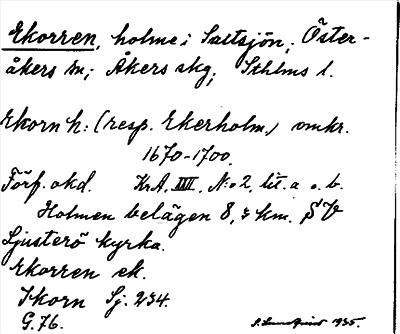 Ekorren, holme i Saltsjön, Öster-
åkers sn; Åkers skg; Sthlms l.
Ekorn h: (resp. Ekerholm) omkr.
1670-1700.
Förf. okd. KrA. XIII. N:o 2, lit. a o. b.
Holmen belägen 8,3 km. SV
Ljusterö kyrka.
Ekorren ek.
Ikorn Sj. 234.
G.76. 1935.